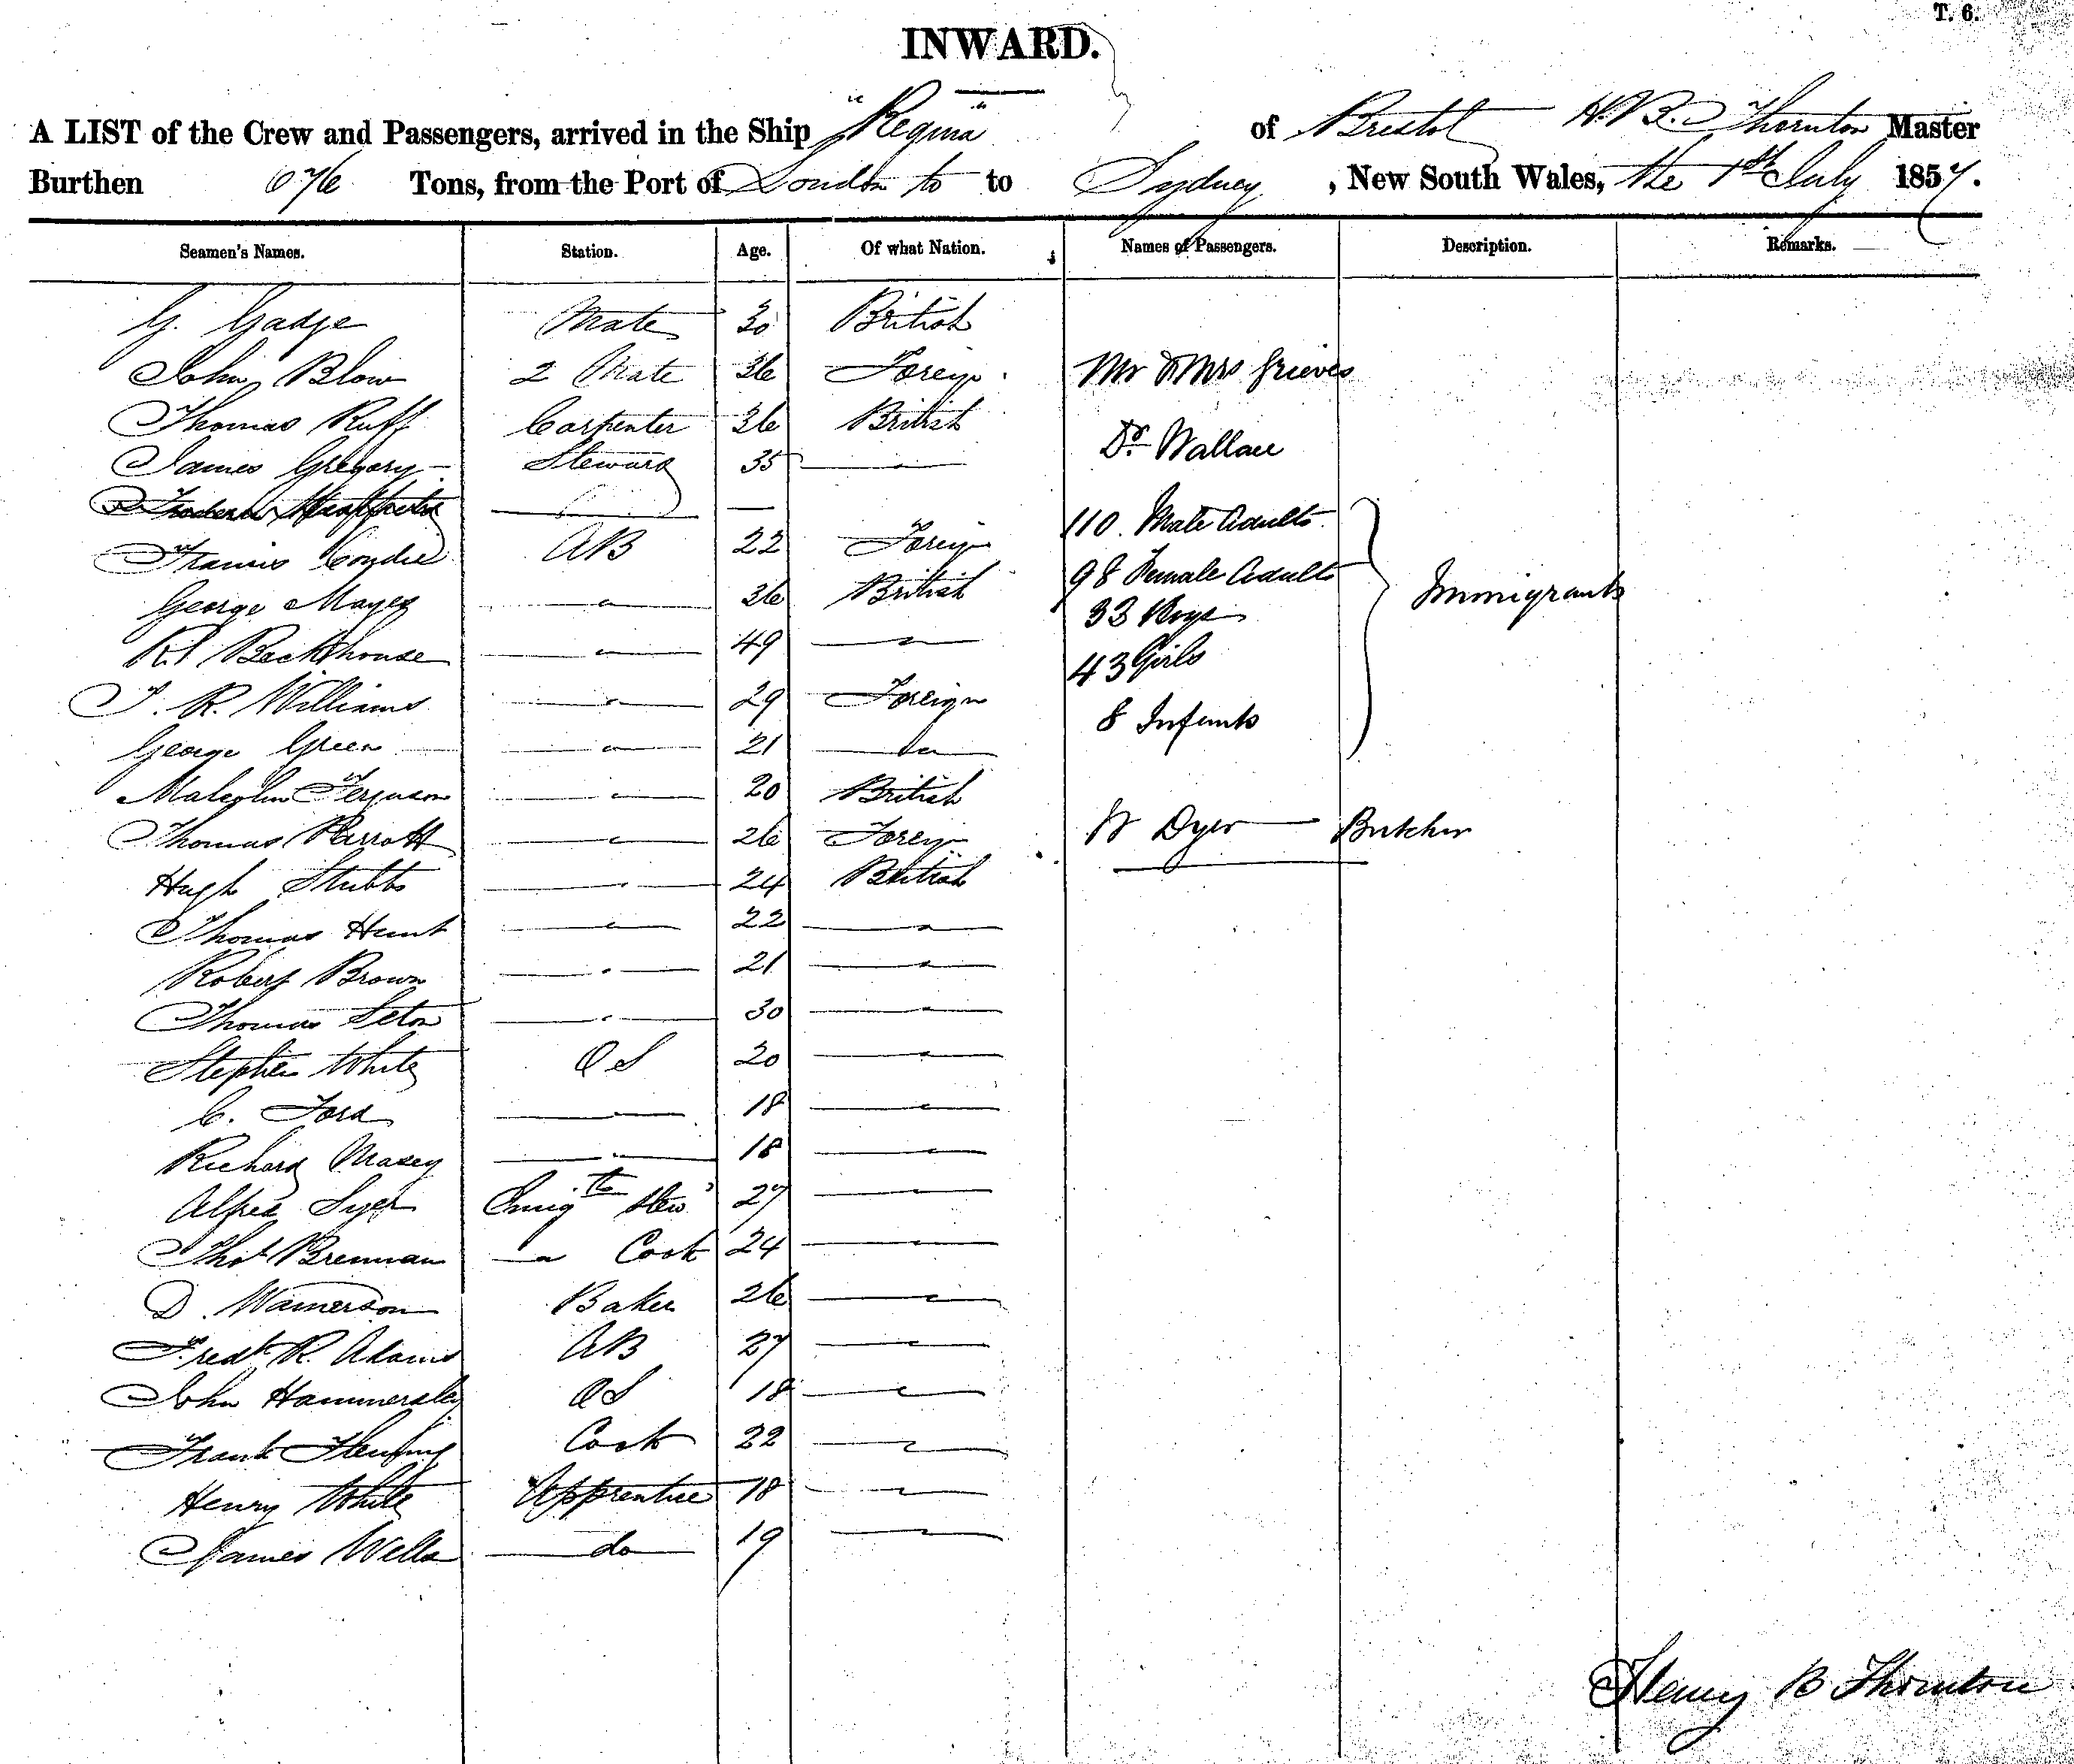 T. 6.
INWARD.
A LIST of the Crew and Passengers, arrived in the Ship "Regina" of Bristol H. B. Thornton Master
Burthen Tons, from the Port of London to to Sydney, New South Wales, the 1st July 1857.
Seamen's Names. Station. Age. Of what Nation. Names of Passengers. Description. Remarks.
G. Gadge Mate 30 British
John Blow 2 Mate 36 Foreign Mr & Mrs Grieves
Thomas Ruff Carpenter 36 British
James Gregory Steward 35 — " — Dr. Wallace
110 Male Adults
Francis Condie AB 22 Foreign
98 Female Adults Immigrants
George Mayes — " — 36 British
33 Boys
Rt Backhouse — " — 49 — " —
43 Girls
J. R. Williams — " — 29 Foreign
8 Infants
George Green — " — 21 — do —
Malcolm Ferguson — " — 20 British
Thomas Parrott — " — 26 Foreign W Dyer — Butcher
Hugh Stubbs — " — 24 British
Thomas Hunt — " — 22 — " —
Robert Brown — " — 21 — " —
Thomas Seton — " — 30 — " —
Stephen White OS 20 — " —
C. Ford — " — 18 — " —
Richard Masey — " — 18 — " —
Alfred Emigts Stewd 27 — " —
Thos Brennan — " Cook 24 — " —
D. Wamerson Baker 26 — " —
Fredk R. Adams AB 27 — " —
John Hammersley OS 18 — " —
Frank Cook 22 — " —
Henry White Apprentice 18 — " —
James Wells — do — 19 — " —
Henry B Thornton